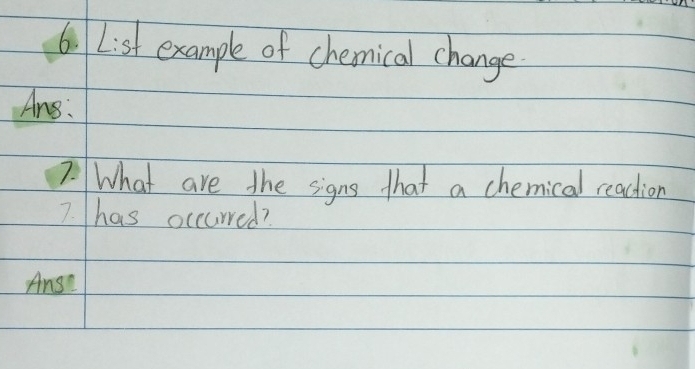 6. List example of chemical change.
Ans:
7. What are the signs that a chemical reaction
7. has occurred?
Ans: